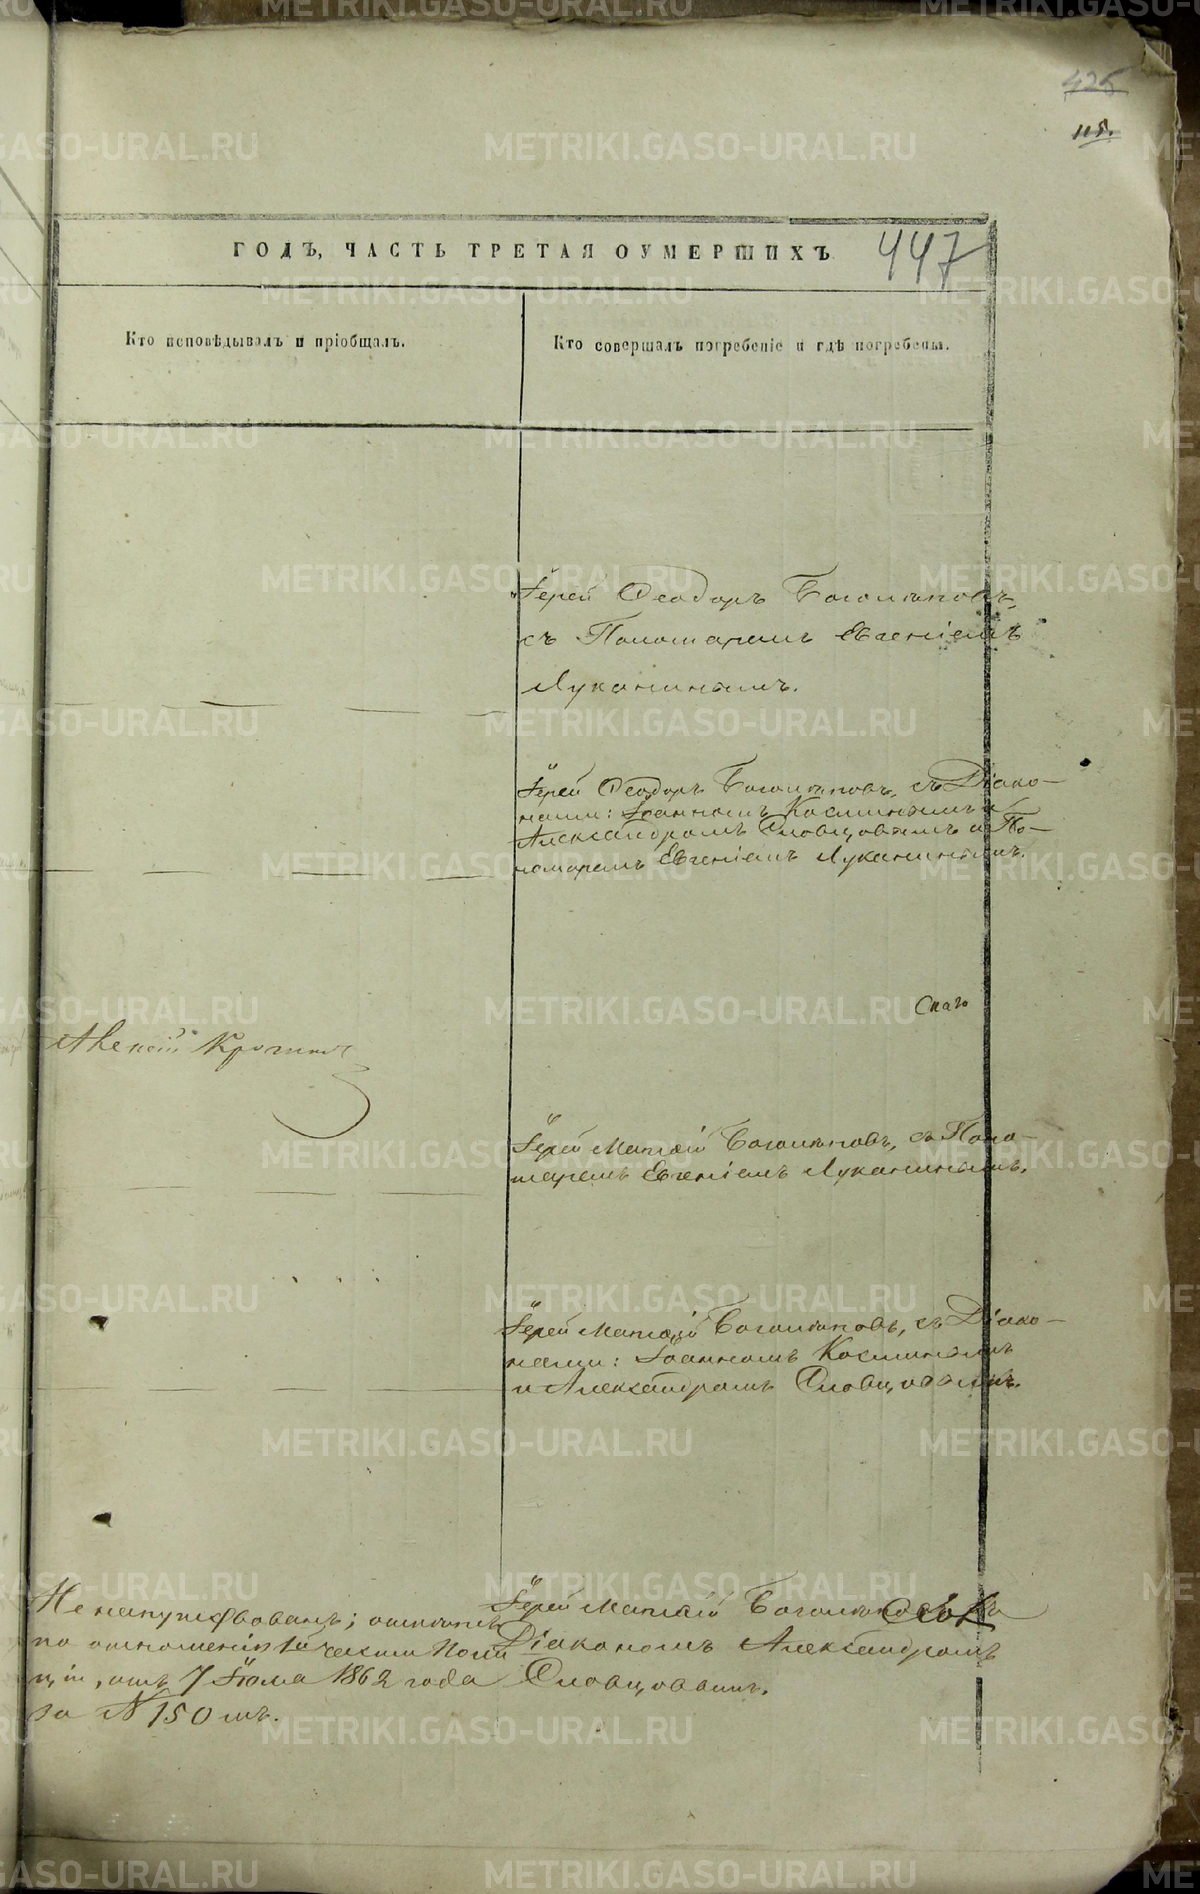 425
115.
ГОДЪ, ЧАСТЬ ТРЕТАЯ О УМЕРШИХЪ
447
Кто исповѣдывалъ и пріобщалъ.
Кто совершалъ погребеніе и гдѣ погребены.
Іерей Ѳеодоръ Боголѣповъ,
съ Пономаремъ Евгеніемъ
Луканинымъ.
Іерей Ѳеодоръ Боголѣповъ, съ Діако-
нами: Іоанномъ Косминымъ и
Александромъ Словцовымъ и По-
номаремъ Евгеніемъ Луканинымъ.
Іерей Матѳій Боголѣповъ, съ Поно-
маремъ Евгеніемъ Луканинымъ.
Іерей Матѳій Боголѣповъ, съ Діако-
нами: Іоанномъ Косминымъ
и Александромъ Словцовымъ.
Не напутствованъ;
по отношенію
ціи, отъ 7 Іюля 1862 года
за N 150 мъ.
Іерей Матѳій Боголѣповъ
Діакономъ Александромъ
Словцовымъ.
METRIKI.GASO-URAL.RU